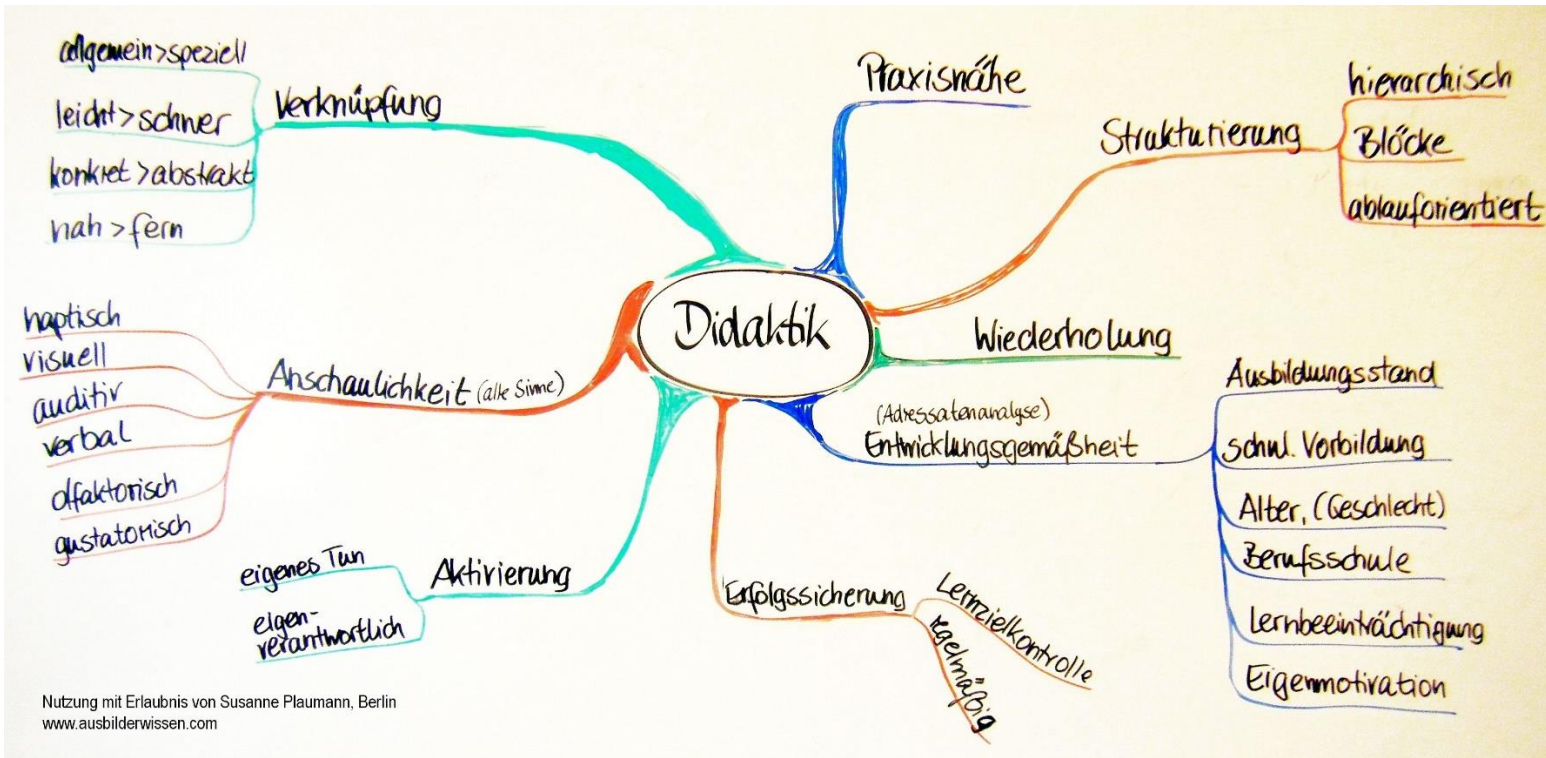 Didaktik
Verknüpfung
allgemein>speziell
leicht>schwer
konkret>abstrakt
nah>fern
Praxisnähe
Strukturierung
hierarchisch
Blöcke
ablauforientiert
Wiederholung
(Adressatenanalyse)
Entwicklungsgemäßheit
Ausbildungsstand
schul. Vorbildung
Alter, (Geschlecht)
Berufsschule
Lernbeeinträchtigung
Eigenmotivation
Erfolgssicherung
Lernzielkontrolle
regelmäßig
Aktivierung
eigenes Tun
eigen-
verantwortlich
Anschaulichkeit (alle Sinne)
haptisch
visuell
auditiv
verbal
olfaktorisch
gustatorisch
Nutzung mit Erlaubnis von Susanne Plaumann, Berlin
www.ausbilderwissen.com